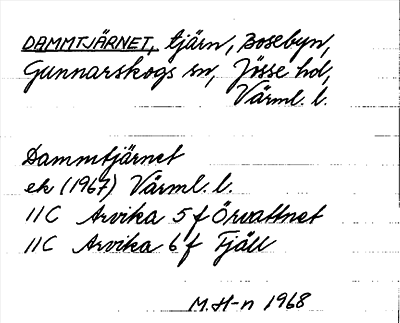 DAMMTJÄRNET, tjärn, Bosebyn,
Gunnarskogs sn, Jösse hd,
Värml. l.
Dammtjärnet
ek (1967) Värml. l.
11C Arvika 5 f Örvattnet
11C Arvika 6 f Fjäll
M.H-n 1968